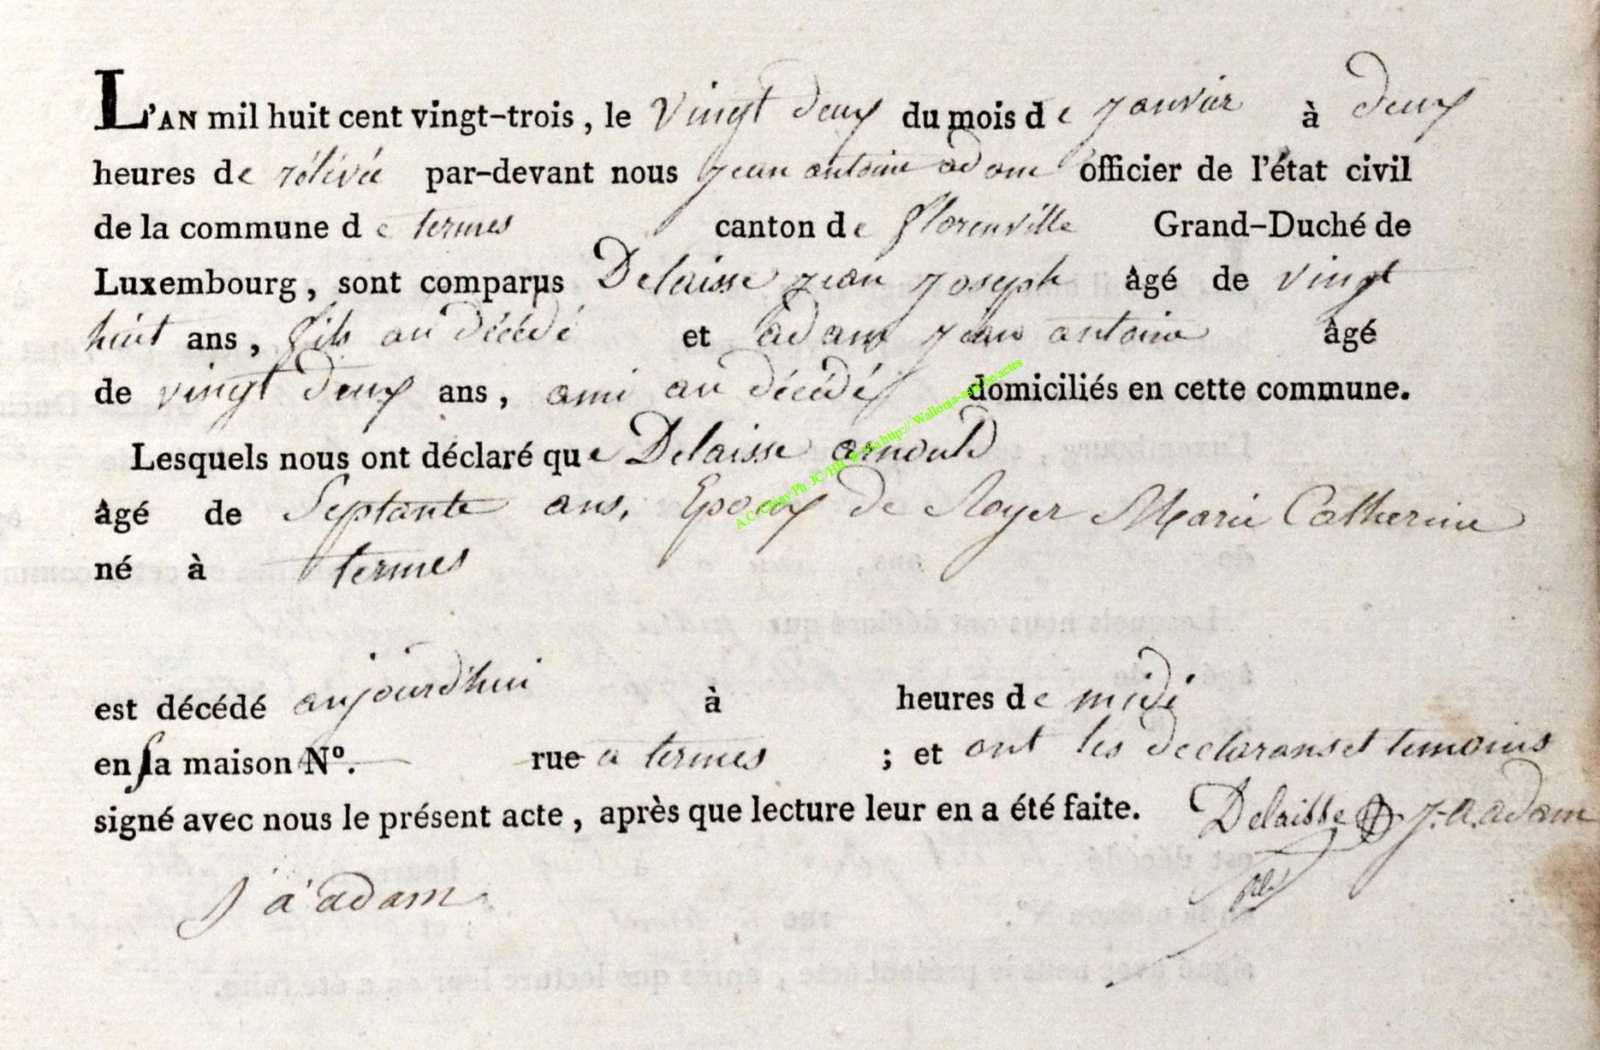 L'AN mil huit cent vingt-trois, le vingt deux du mois de janvier à deux
heures de rélévée par-devant nous jean antoine adam officier de l'état civil
de la commune de termes canton de florenville Grand-Duché de
Luxembourg, sont comparus Delaisse jean joseph âgé de vingt
huit ans, fils au décédé et adam jean antoine âgé
de vingt deux ans, ami au décédé domiciliés en cette commune.
Lesquels nous ont déclaré que Delaisse arnould
âgé de Septante ans, Epoux de Royer Marie Catherine
né à termes
est décédé aujourd'hui à heures de midi
en sa maison N°. rue a termes ; et ont les declarans et temoins
signé avec nous le présent acte, après que lecture leur en a été faite. Delaisse j.a.adam
j a adam